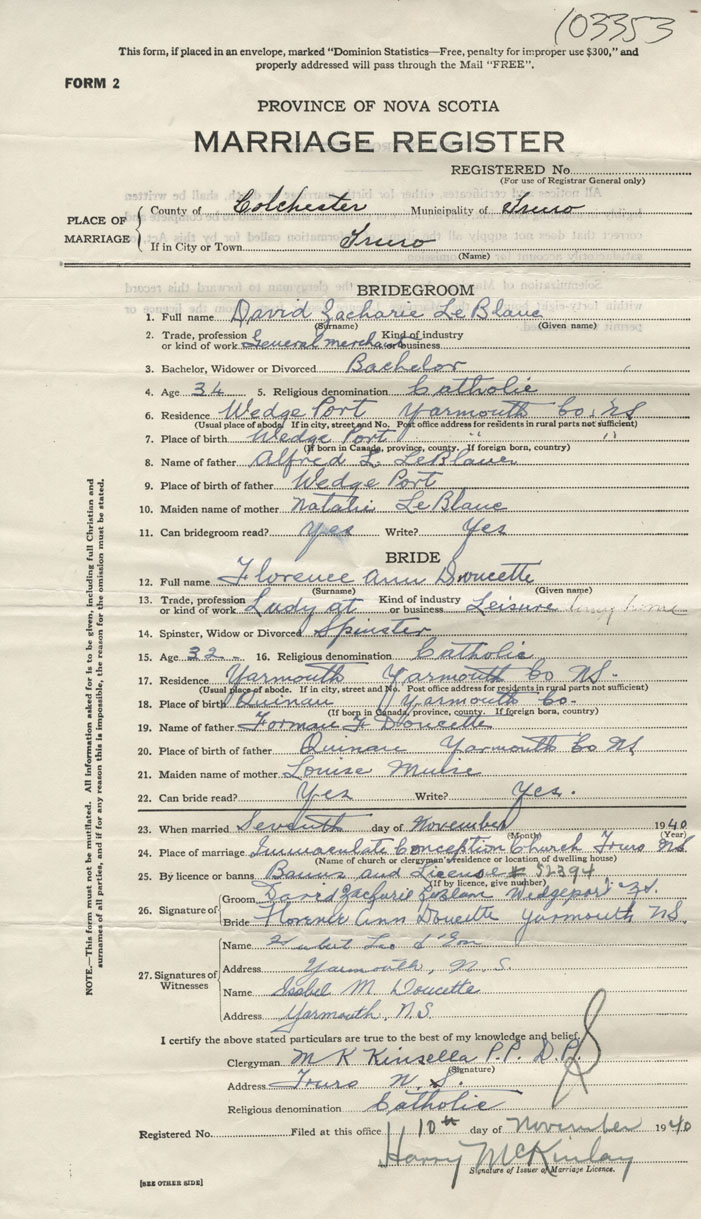 103353
This form, if placed in an envelope, marked "Dominion Statistics—Free, penalty for improper use $300," and
properly addressed will pass through the Mail "FREE".
FORM 2
PROVINCE OF NOVA SCOTIA
MARRIAGE REGISTER
REGISTERED No.
(For use of Registrar General only)
PLACE OF MARRIAGE
County of Colchester Municipality of Truro
If in City or Town Truro
(Name)
BRIDEGROOM
1. Full name David Zacharie LeBlanc
(Surname) (Given name)
2. Trade, profession or kind of work General merchant Kind of industry or business
3. Bachelor, Widower or Divorced Bachelor
4. Age 34 5. Religious denomination Catholic
6. Residence Wedge Port Yarmouth Co. NS
(Usual place of abode. If in city, street and No. Post office address for residents in rural parts not sufficient)
7. Place of birth Wedge Port " "
(If born in Canada, province, county. If foreign born, country)
8. Name of father Alfred L. LeBlanc
9. Place of birth of father Wedge Port
10. Maiden name of mother Natalie LeBlanc
11. Can bridegroom read? Yes Write? Yes
BRIDE
12. Full name Florence Ann Doucette
(Surname) (Given name)
13. Trade, profession or kind of work Lady at Kind of industry or business Leisure home
14. Spinster, Widow or Divorced Spinster
15. Age 32 16. Religious denomination Catholic
17. Residence Yarmouth Yarmouth Co NS.
(Usual place of abode. If in city, street and No. Post office address for residents in rural parts not sufficient)
18. Place of birth Quinan Yarmouth Co.
(If born in Canada, province, county. If foreign born, country)
19. Name of father Forman F Doucette
20. Place of birth of father Quinan Yarmouth Co NS
21. Maiden name of mother Louise Muise
22. Can bride read? Yes Write? Yes.
23. When married Seventh day of November 1940
(Month) (Year)
24. Place of marriage Immaculate Conception Church Truro NS
(Name of church or clergyman's residence or location of dwelling house)
25. By licence or banns Banns and License # 52394
(If by licence, give number)
26. Signature of
Groom David Zacharie LeBlanc Wedgeport N.S.
Bride Florence Ann Doucette Yarmouth NS.
27. Signatures of Witnesses
Name Hubert Leo d'Eon
Address Yarmouth, N.S.
Name Isabel M Doucette
Address Yarmouth, N.S.
I certify the above stated particulars are true to the best of my knowledge and belief.
Clergyman M K Kinsella P.P. D.P.
(Signature)
Address Truro N.S.
Religious denomination Catholic
Registered No. Filed at this office 10th day of November 1940
Harry McKinlay
Signature of Issuer of Marriage Licence.
[SEE OTHER SIDE]
NOTE.—This form must not be mutilated. All information asked for is to be given, including full Christian and
surnames of all parties, and if for any reason this is impossible, the reason for the omission must be stated.